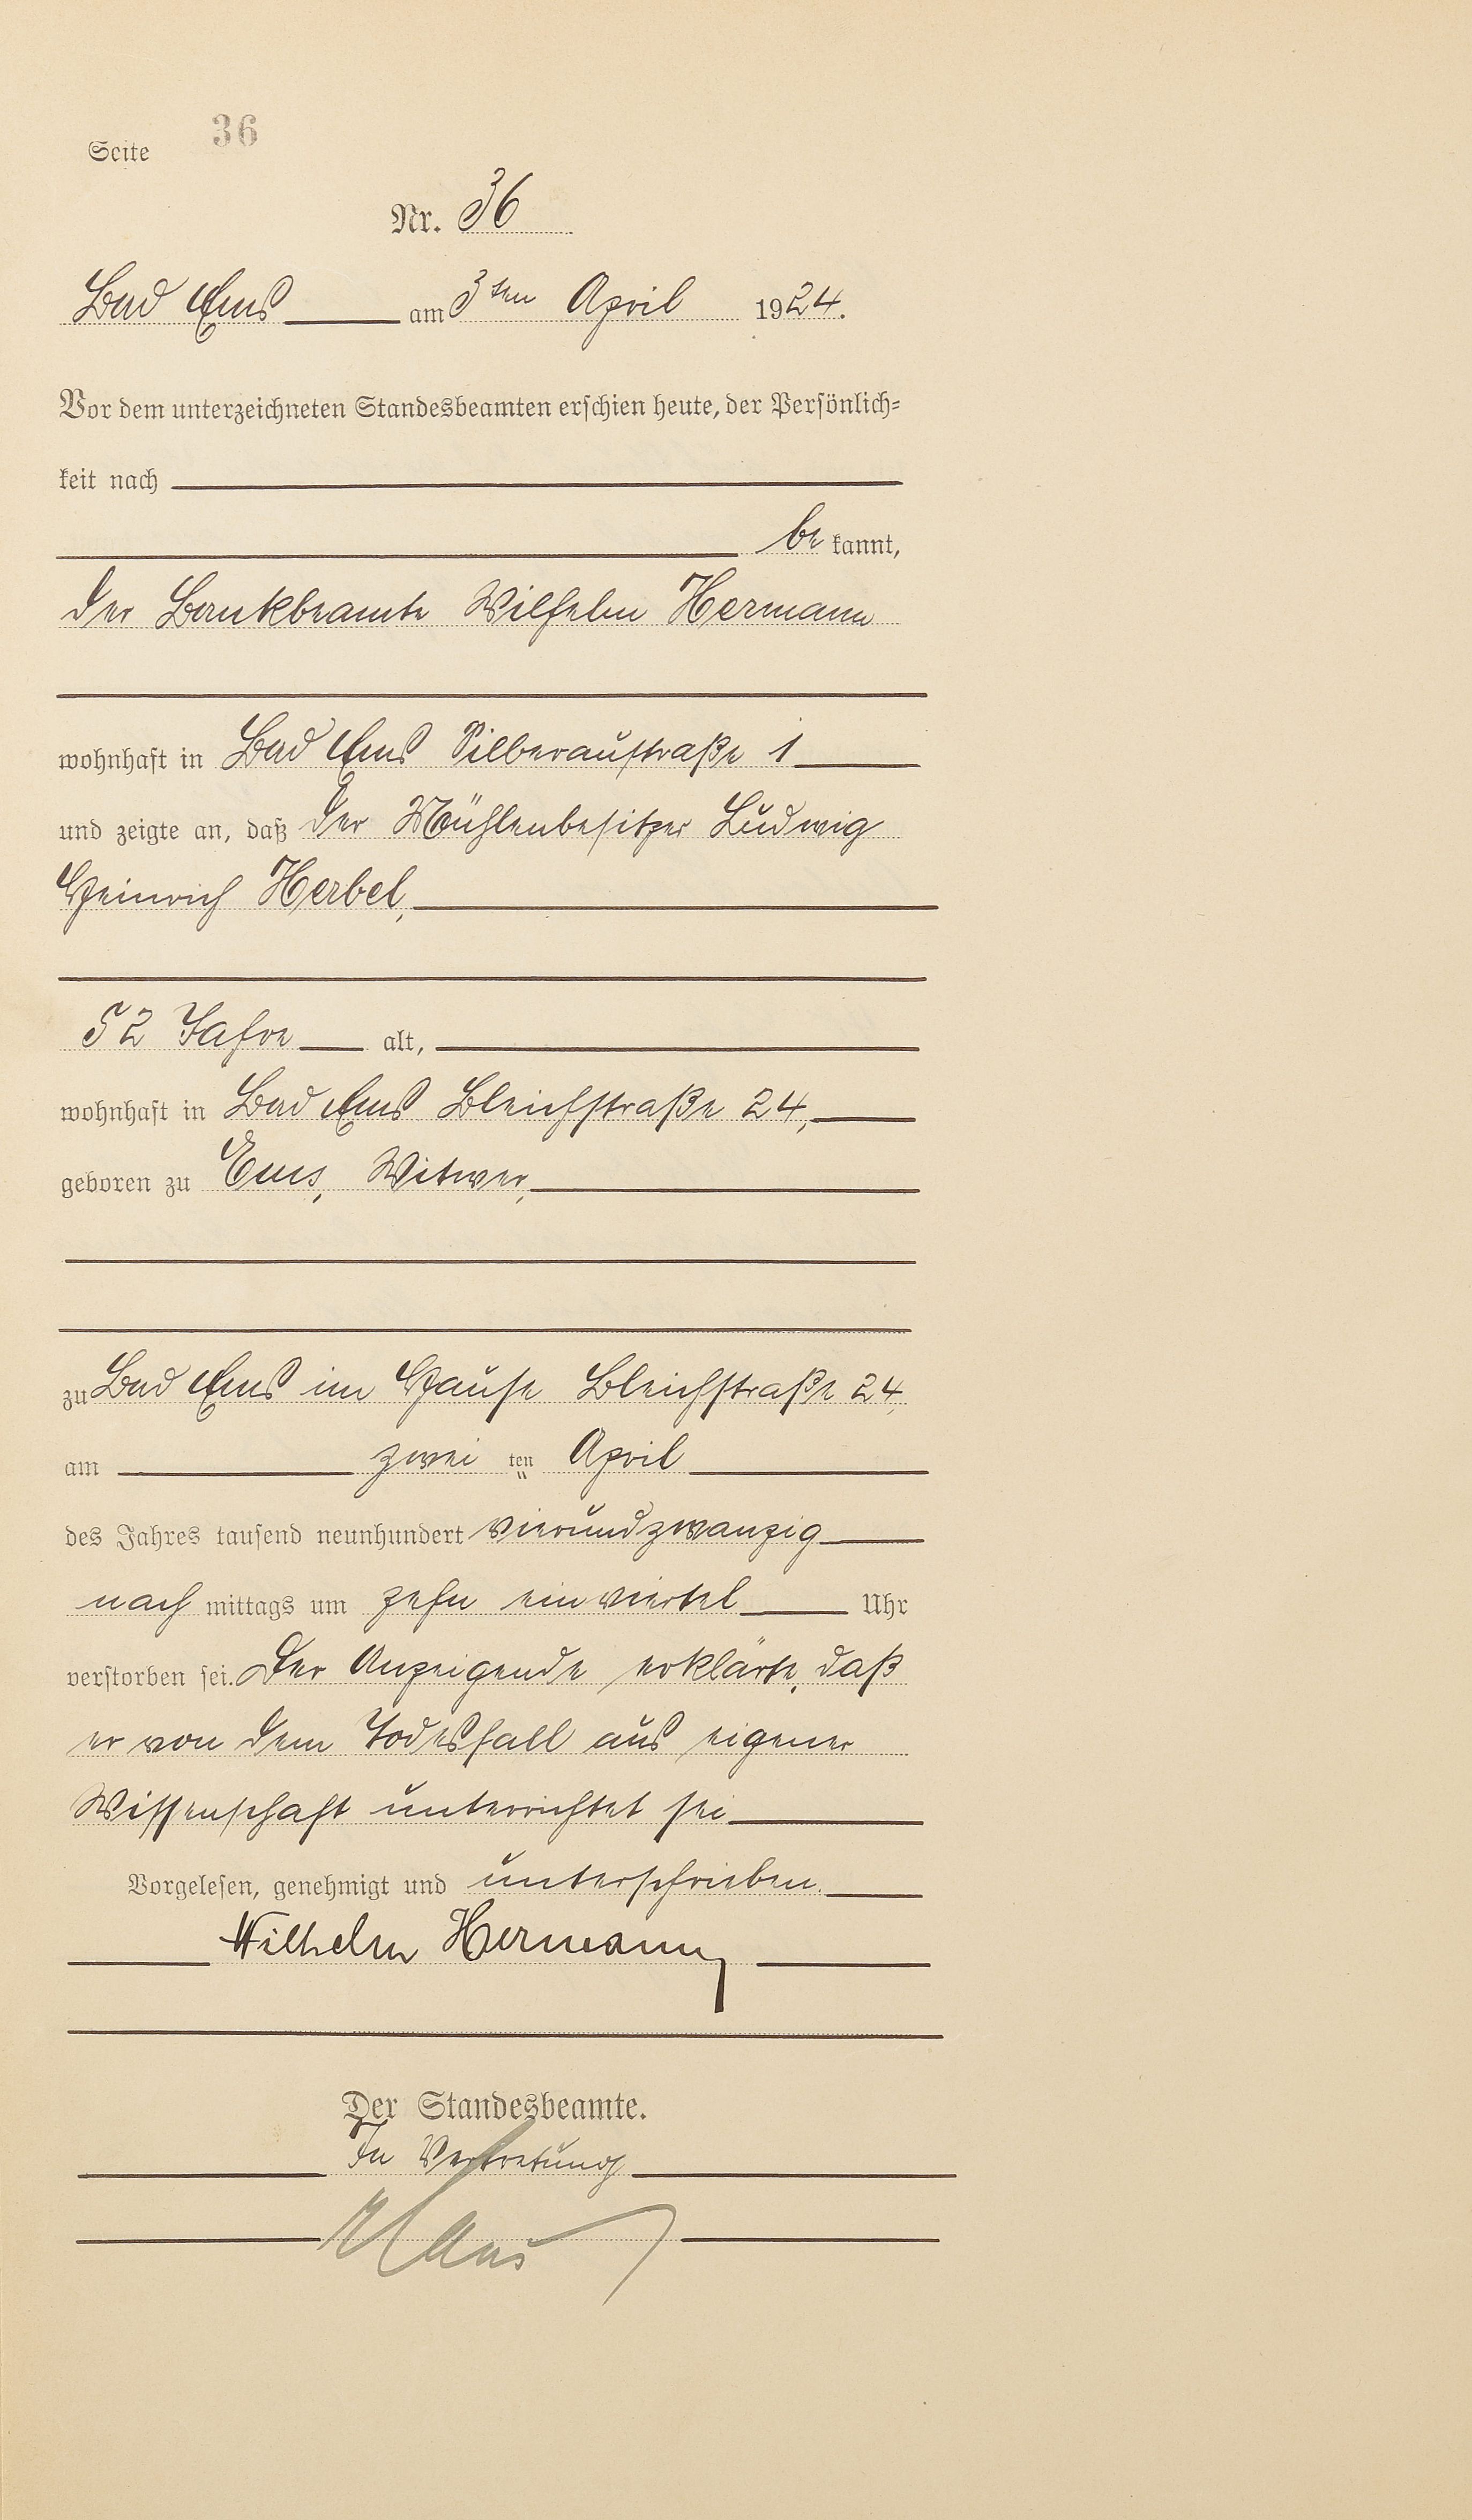 Seite 36
Nr. 36
Bad Ems am 3ten April 1924.
Vor dem unterzeichneten Standesbeamten erschien heute, der Persönlich-
keit nach
be kannt,
der Bankbeamte Wilhelm Hermann
wohnhaft in Bad Ems Silberaustraße 1
und zeigte an, daß der Mühlenbesitzer Ludwig
Heinrich Herbel,
52 Jahre alt,
wohnhaft in Bad Ems Bleichstraße 24,
geboren zu Ems, Witwer,
zu Bad Ems im Hause Bleichstraße 24,
am zwei ten April
des Jahres tausend neunhundert vierundzwanzig
nach mittags um zehn einviertel Uhr
verstorben sei. Der Anzeigende erklärte, daß
er von dem Todesfall aus eigener
Wissenschaft unterrichtet sei
Vorgelesen, genehmigt und unterschrieben.
Wilhelm Hermann
Der Standesbeamte.
In Vertretung